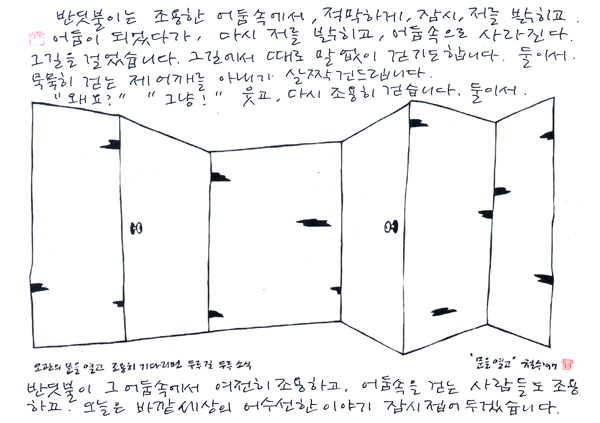 반딧불이는 조용한 어둠속에서, 적막하게, 잠시, 저를 밝히고.
어둠이 되었다가, 다시 저를 밝히고, 어둠속으로 사라진다.
그길을 걸었습니다. 그길에서 때로 말 없이 걷기도합니다. 둘이서.
묵묵히 걷는 제 어깨를 아내가 살짝 건드립니다.
"왜요?" "그냥!" 웃고, 다시 조용히 걷습니다. 둘이서.
오관의 문을 열고 조용히 기다리면 두루 길 두루 소식
"문을 열고" 철수 '97
반딧불이 그 어둠속에서 여전히 조용하고, 어둠속을 걷는 사람들도 조용
하고. 오늘은 바깥세상의 어수선한 이야기 잠시 접어 두겠습니다.